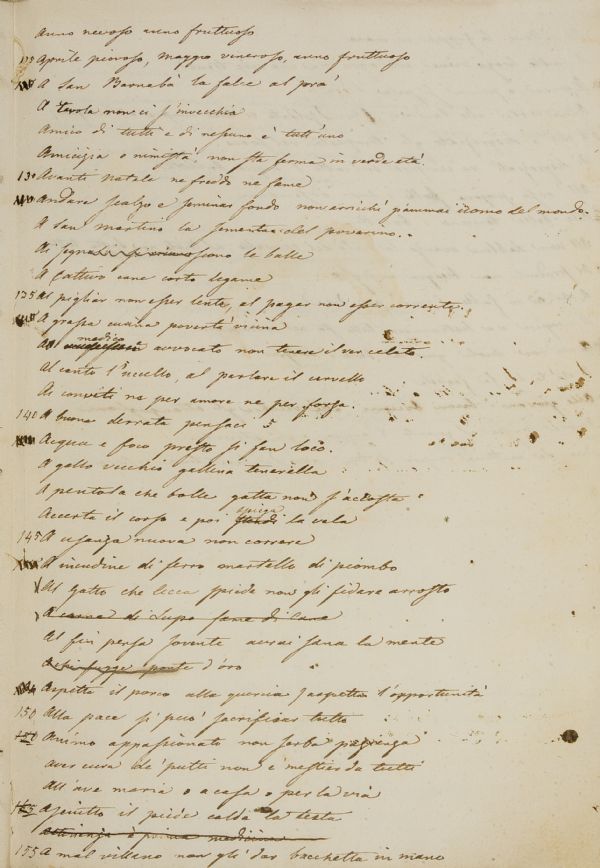 Anno nevoso anno fruttuoso
Aprile piovoso, Maggio veneroso, anno fruttuoso
A San Barnabà la falce al prà
A tavola non ci s'invecchia
Amico di tutti e di nessuno è tutt'uno
Amicizia o nimistà, non sta ferma in verde età
130 Avanti Natale ne freddo ne fame
Andare scalzo e seminar fondo non arrichì giammai uomo del mondo.
A San Martino la sementa del poverino.
Ai segnali si sono le balle
A Cattivo cane corto legame
135 Al pigliar non esser lente, al pagar non esser corrente
A grassa cucina povertà vicina
medico
Al avvocato non tenere il ver celato.
Al canto l'uccello, al parlare il cervello
Ai conviti ne per amore ne per forza.
140 A buona derrata pensaci
Acqua e foco presto si fan loco.
A gatto vecchio gallina tenerella
A pentola che bolle gatta non s'accosta
spiega
Accerta il corso e poi la vela
145 A usanza nuova non correre
A incudine di ferro martello di piombo
Al gatto che lecca spiede non gli fidare arrosto
A carne di Lupo fame di Cane
Al fin pensa sovente avrai sana la mente
A chi fugge ponte d'oro
Aspetta il porco alla quercia / aspetta l'opportunità
150 Alla pace si può sacrificar tutto
150 Animo appassionato non serba
Aver cura de' putti non è mestier da tutti
All'ave maria o a casa o per la via
155 Asciutto il piede calda la testa
Astinenza è prima medicina
155 A mal villano non gli dar bacchetta in mano